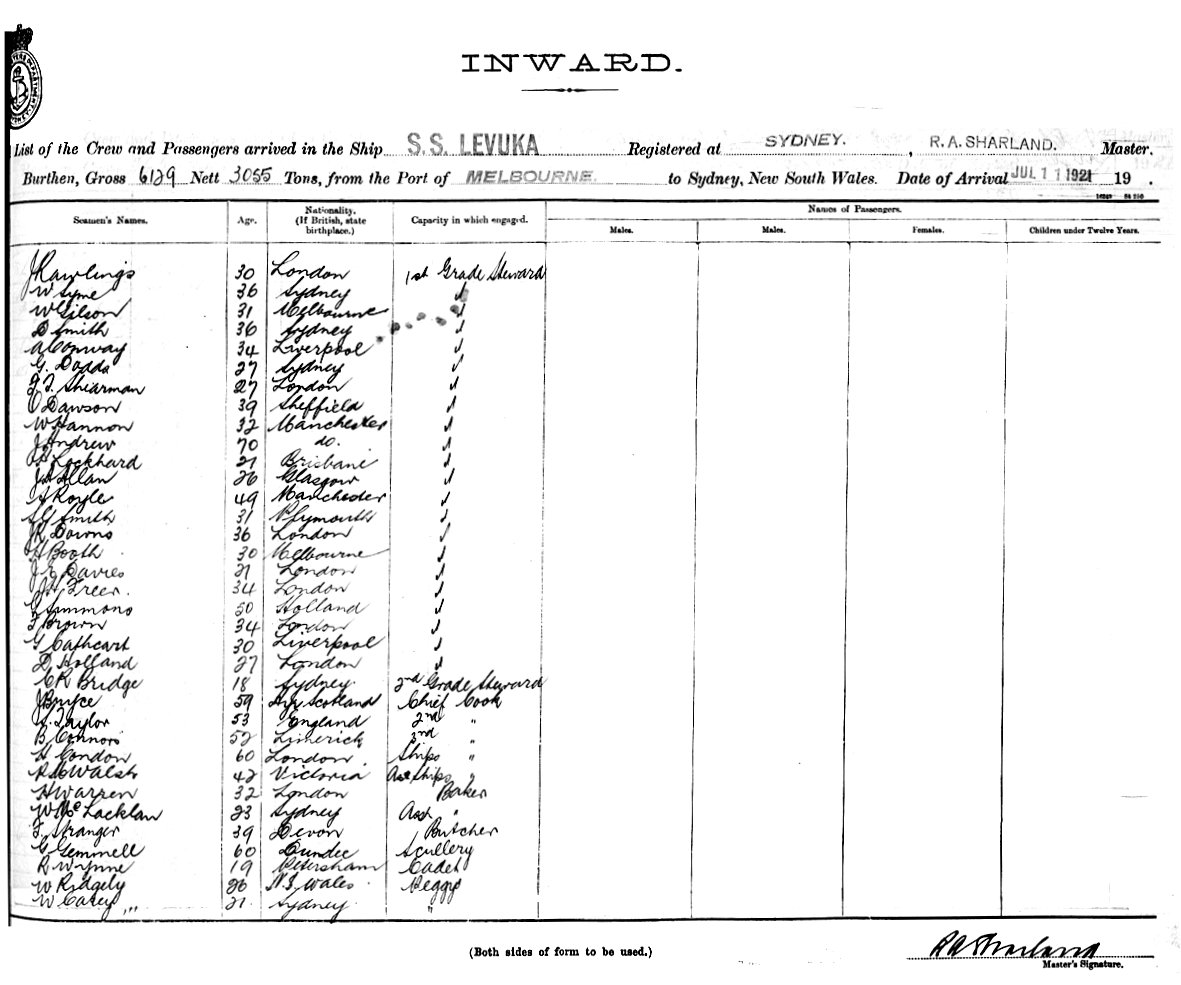 INWARD.
List of the Crew and Passengers arrived in the Ship S.S. LEVUKA Registered at SYDNEY. , R.A. SHARLAND. Master.
Burthen, Gross 6129 Nett 3055 Tons, from the Port of MELBOURNE. to Sydney, New South Wales. Date of Arrival JUL 11 1921 19 .
Seamen's Names. Age. Nationality. (If British, state birthplace.) Capacity in which engaged. Names of Passengers.
Males. Males. Females. Children under Twelve Years.
J Rawlings 30 London 1st Grade Steward
W Syme 36 Sydney
W Gilson 31 Melbourne
D Smith 36 Sydney
A Conway 34 Liverpool
G. Dodds 27 Sydney
Shearman 27 London
Dawson 39 Sheffield
W Hannon 32 Manchester
J Andrew 70 do.
Lockhard 21 Brisbane
J A Allan 26 Glasgow
A Royle 49 Manchester
Smith 31 Plymouth
J R Downs 36 London
H Booth 30 Melbourne
Davies 21 London
J H Freer. 34 London
Simmons 50 Holland
F Brown 34 London
G Cathcart 30 Liverpool
D Holland 27 London
C R Bridge 18 Sydney 2nd Grade Steward
J Bryce 59 Ayr Scotland Chief Cook
Taylor 53 England 2nd "
B Connors 52 Limerick 3rd "
H Condon 60 London Ships "
Walsh 42 Victoria Asst Ships "
H Warren 32 London Baker
W McLacklan 23 Sydney Asst "
F Stranger 39 Devon Butcher
G Gemmell 60 Dundee Scullery
R Wynne 19 Petersham Cadet
W Ridgely 26 N.S. Wales Peggy
W Carey 21 Sydney "
(Both sides of form to be used.)
R A Sharland
Master's Signature.